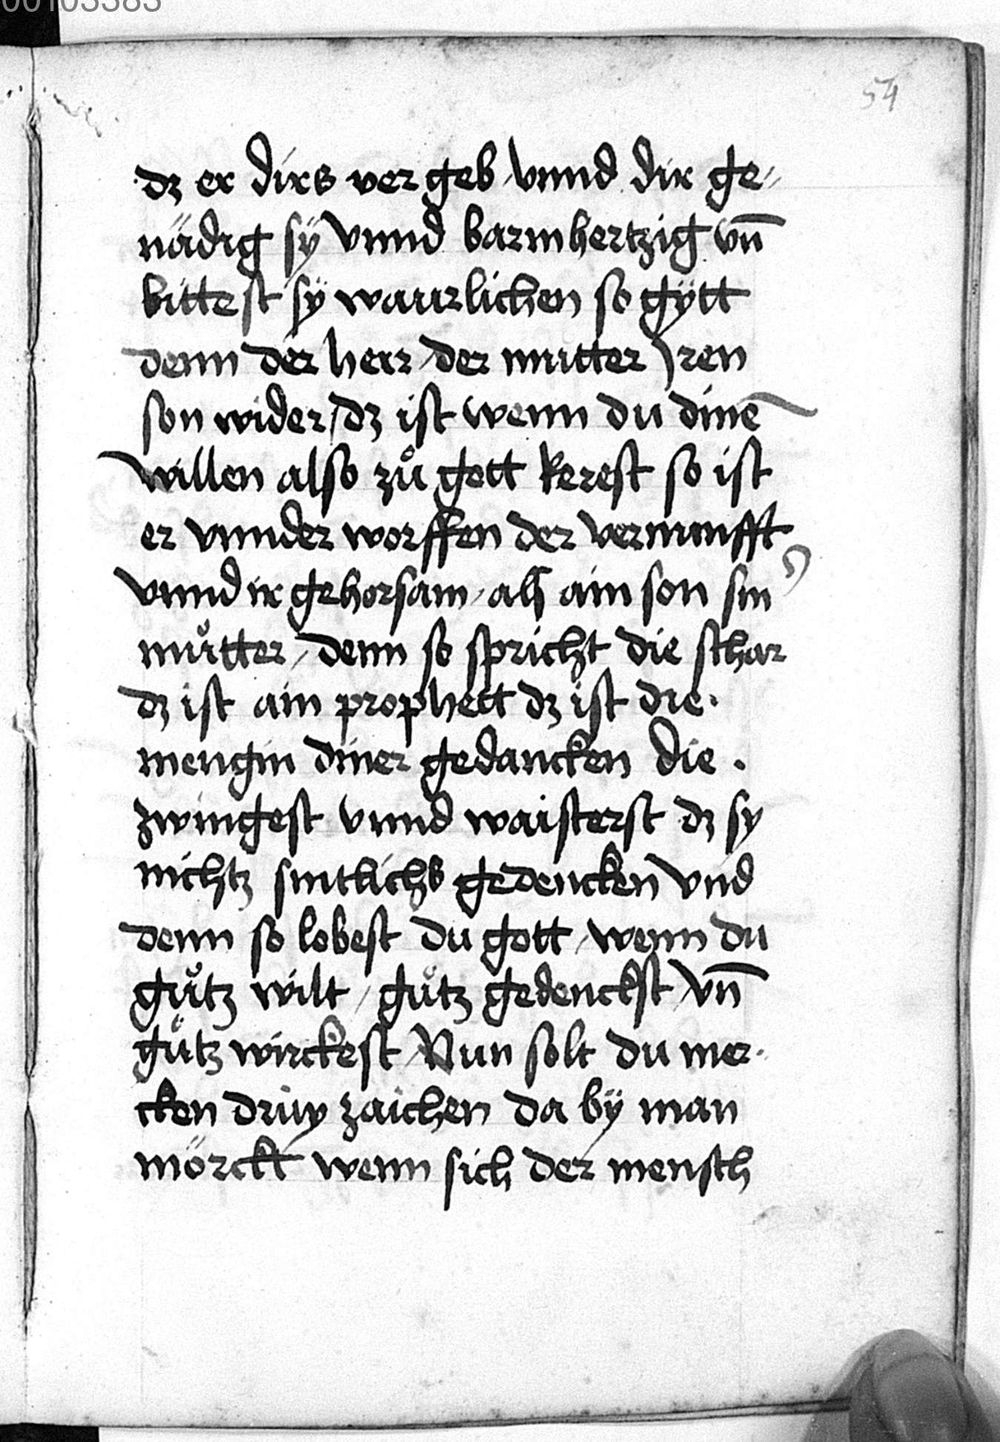 00103383
54
dz er dirs ver geb / vnnd dir ge⸗
nädig sÿ vnnd barmhertzig vn̄
bittest sÿ waurlichen so gÿtt
denn der herr / der mutter jren
son wider / dz ist wenn du dinē
willen also zů gott kerest so ist
er vnnder worffen der vernunfft
vnnd ir gehorsam / als ain son sin̾
můtter / denn so spricht die schar
dz ist ain prophett dz ist die ·
mengin diner gedancken die ·
zwingest vnnd maisterst dz sy
nichtz sintlichs gedencken vnd
denn so lobest du gott / wenn du
gůtz wilt / gůtz gedenckst / vn̄
gůtz wirckest / Nun solt du mer⸗
cken driw zaichen da bÿ man
mörckt wenn sich der mensch